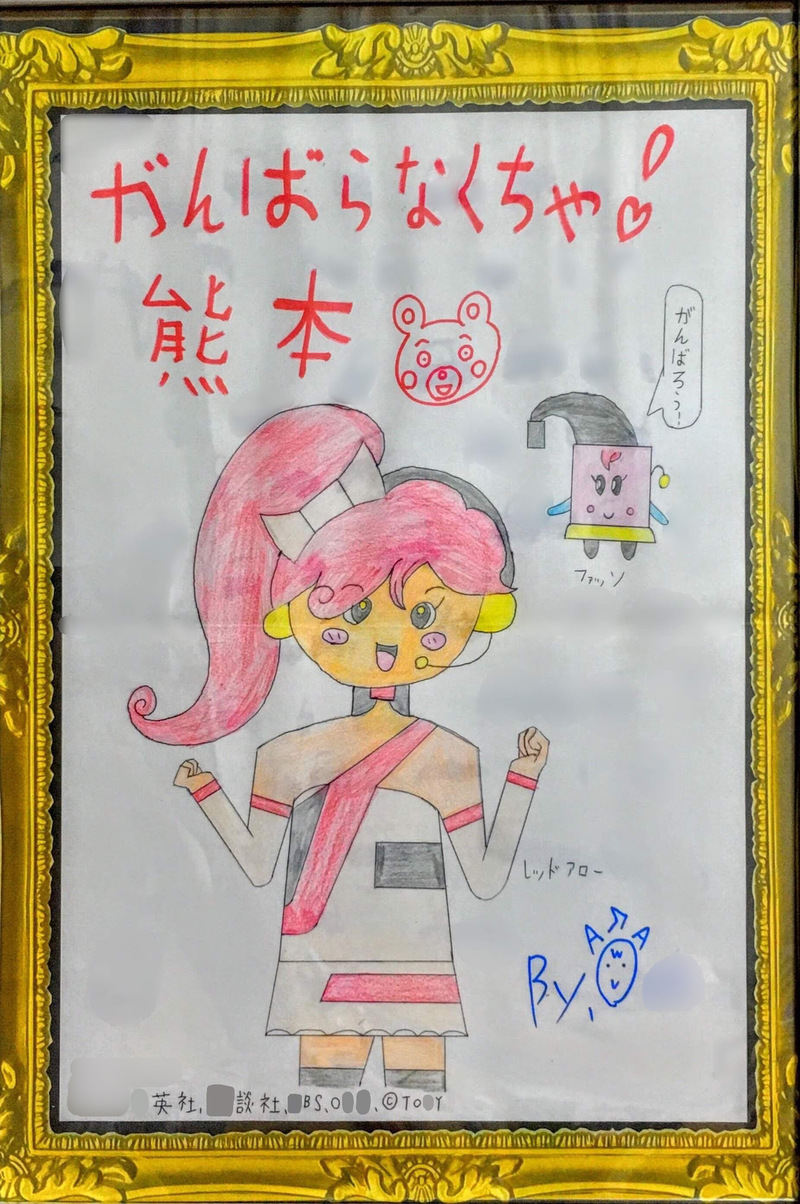 がんばらなくちゃ!
熊本
がんばろう!
ファッソ
レッドアロー
By,
英社, 談社, BS、O 、©TO Y